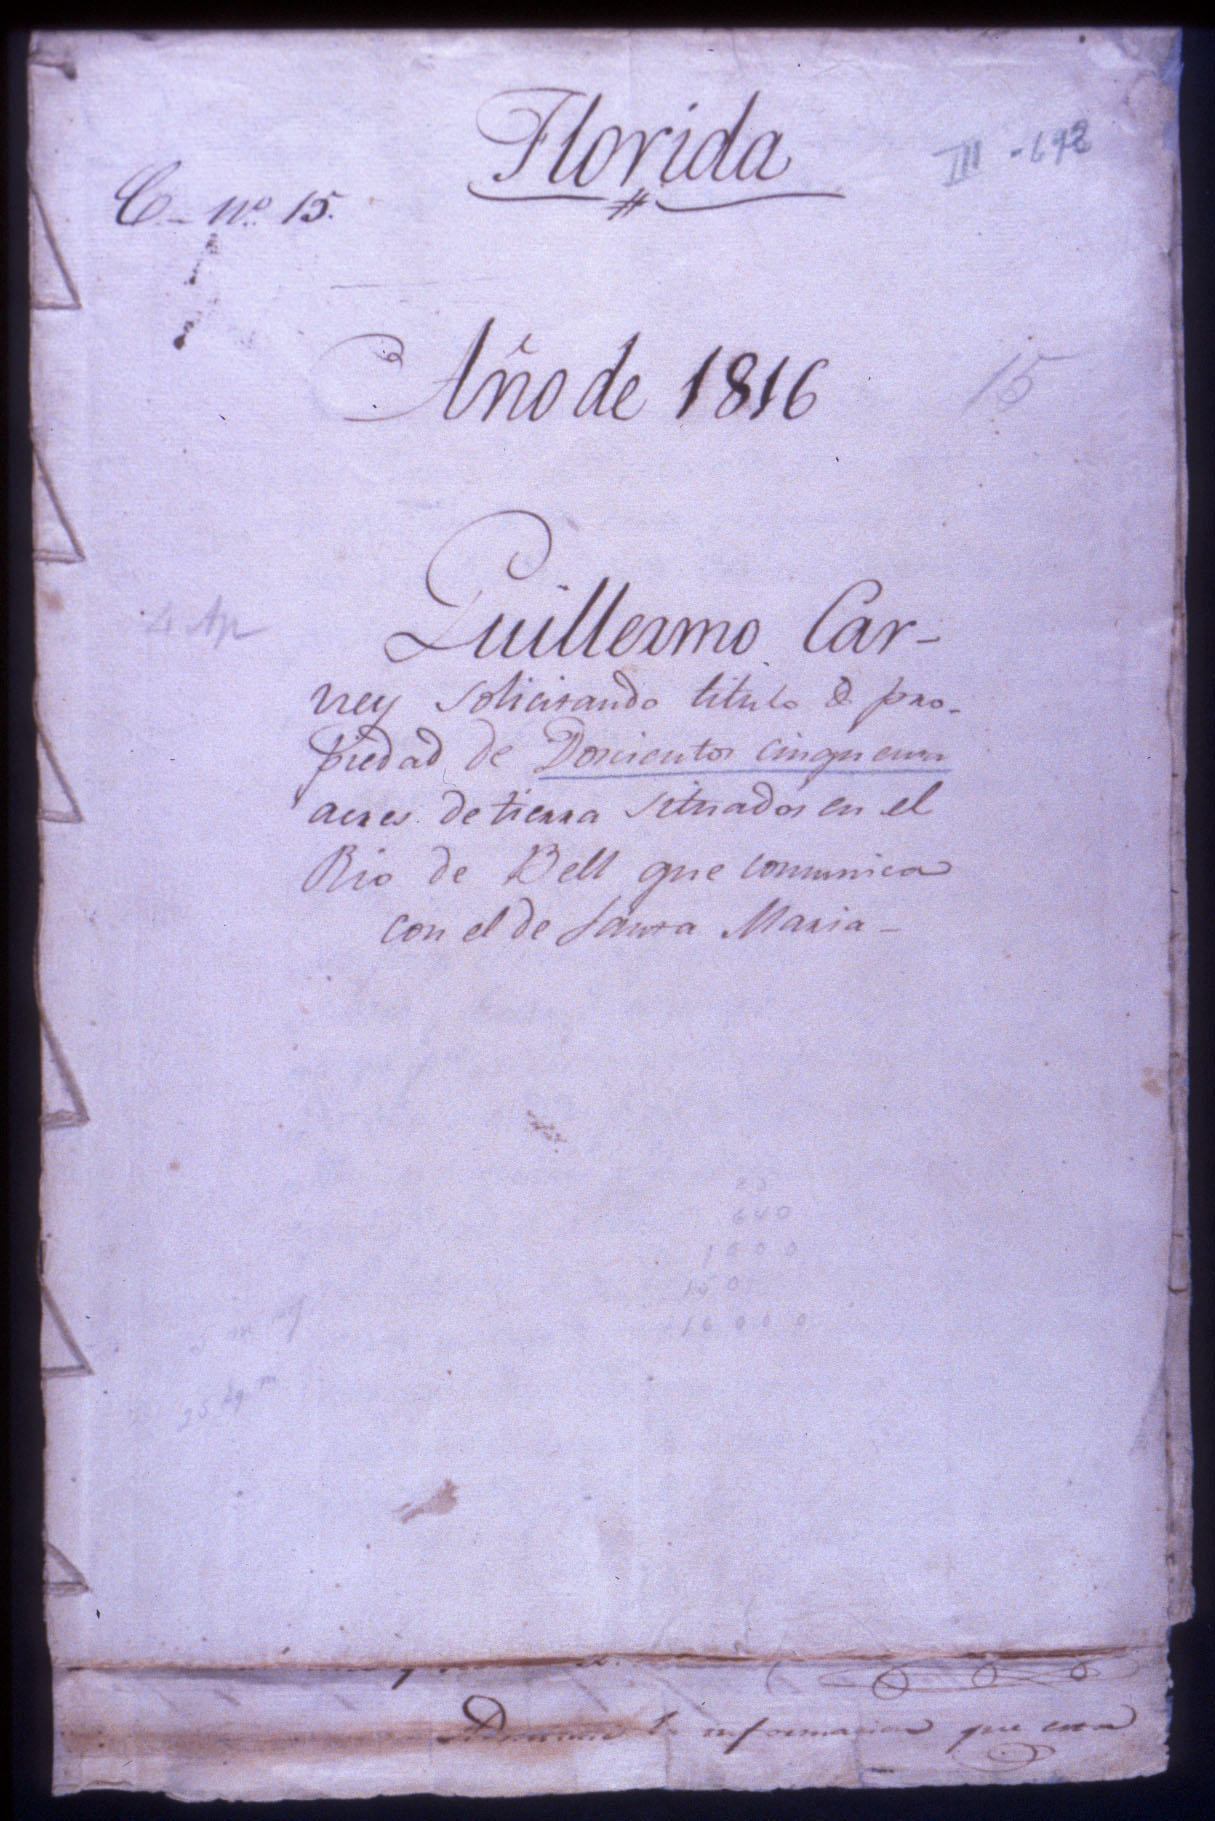 Florida
III - 698
C. nº 15.
Año de 1816
15
Guillermo Car-
ney solicitando titulo de pro-
piedad de Doscientos cinquenta
acres de tierra situados en el
Rio de Bell que comunica
con el de Santa Maria -
640
1000
150
16000
25 sq m
informacion que esta